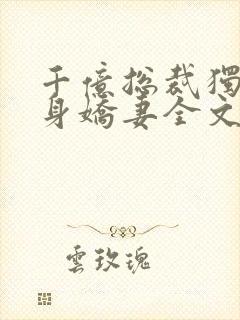 千億總裁獨
身嬌妻全文
雲玫瑰